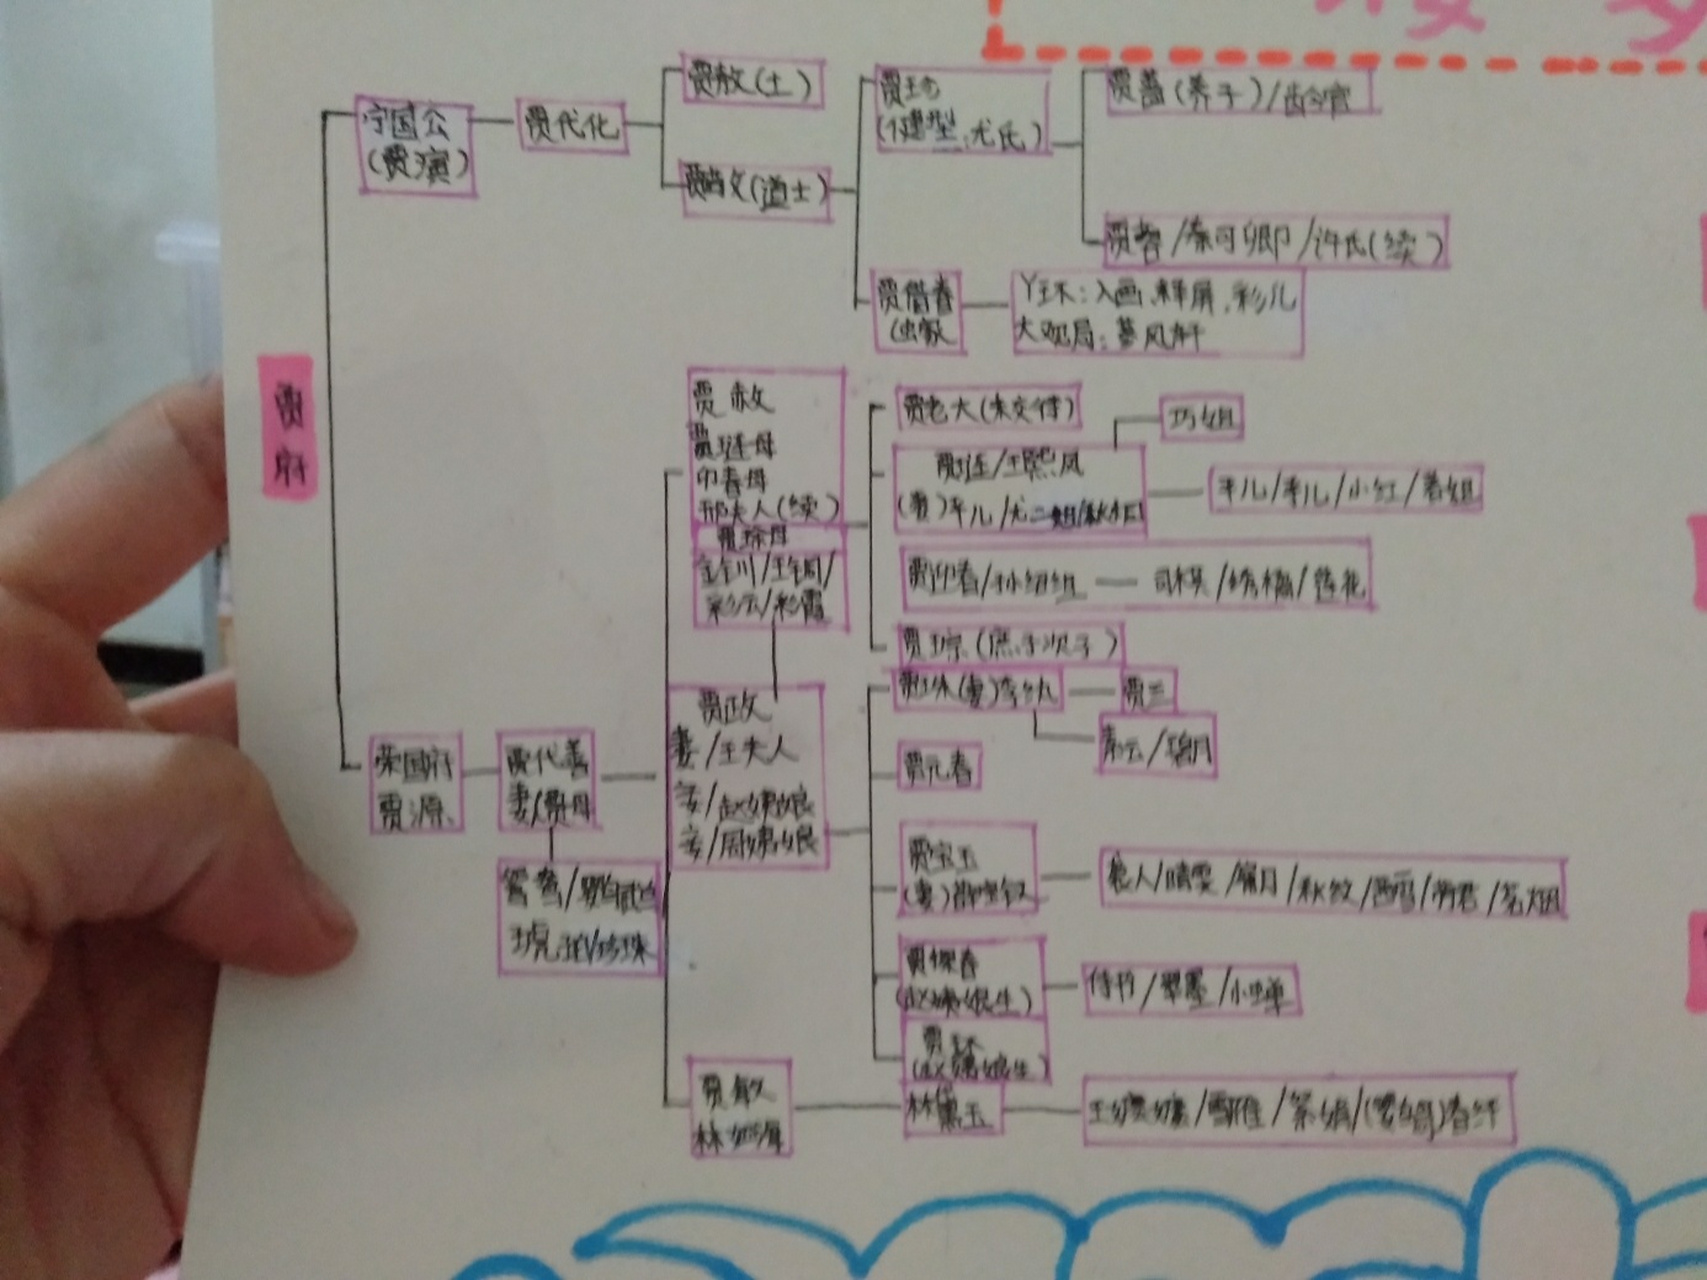 贾府
宁国公
(贾演)
贾代化
贾敖(土)
贾敬(道士)
贾珍
尤氏)
贾蔷(养子)/龄官
贾蓉/秦可卿/许氏(续)
贾惜春
丫环:入画.彩屏.彩儿
大观局:蓼风轩
贾赦
贾琏母
印春母
邢夫人(续)
贾琮母
金钏/玉钏/
彩云/彩霞
贾老大(未交待)
巧姐
贾琏/王熙凤
(妻)平儿/尤二姐/秋桐
平儿/丰儿/小红/善姐
贾迎春/孙绍祖
司棋/绣橘/莲花
贾琮(庶子次子)
贾政
妻/王夫人
妾/赵姨娘
妾/周姨娘
贾珠(妻)李纨
贾兰
素云/碧月
贾元春
荣国府
贾源
贾代善
妻/贾母
鸳鸯/鹦鹉
琥珀/珍珠
贾宝玉
(妻)薛宝钗
袭人/晴雯/麝月/秋纹/茜雪/茗烟
贾探春
(赵姨娘生)
侍书/翠墨/小蝉
贾环
(赵姨娘生)
贾敏
林如海
林黛玉
王嬷嬷/雪雁/紫娟/春纤